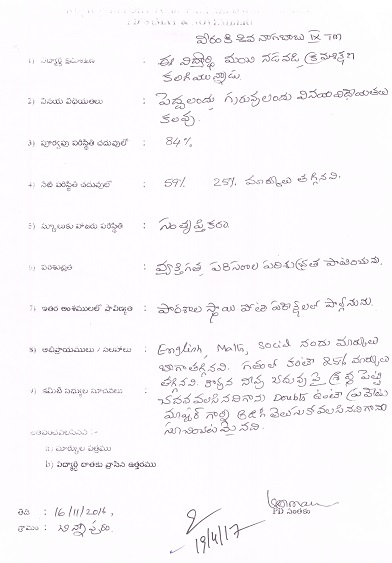 వీరంకి శివ నాగబాబు IX TM
1) విద్యార్థి క్రమశిక్షణ : ఈ విద్యార్థి మంచి నడవడి క్రమశిక్షణ
కలిగియున్నాడు.
2) వినయ విధేయతలు : పెద్దలందు గురువులందు వినయవిధేయతలు
కలవు.
3) పూర్వపు పరిస్థితి చదువులో : 84%
4) నేటి పరిస్థితి చదువులో : 59% 25% మార్కులు తగ్గినవి.
5) స్కూలుకు హాజరు పరిస్థితి : సంతృప్తికరం.
6) పరిశుభ్రత : వ్యక్తిగత, పరిసరాల పరిశుభ్రత పాటించును.
7) ఇతర అంశములలో ప్రావీణ్యత : పాఠశాల స్థాయి పోటీ పరీక్షలలో పాల్గొనును.
8) అభిప్రాయములు / సలహాలు : English, Maths, Social నందు మార్కులు
బాగా తగ్గినవి. గతంలో కంటే 25% మార్కులు
తగ్గినవి. కావున నీవు చదువు పై శ్రద్ధ పెట్టి
9) కమిటీ సభ్యుల సూచనలు :
చదవవలసినదిగాను Doubts ఉంటే
మాష్టర్ గార్ని అడిగి తెలుసుకోవలసినదిగాను
సూచించడమైనది.
జతపరచవలసినవి :-
a) మార్కుల పత్రము
b) విద్యార్థి దాతకు వ్రాసిన ఉత్తరము
తేది : 16/11/2016,
PD సంతకం
గ్రామం :
19/4/17